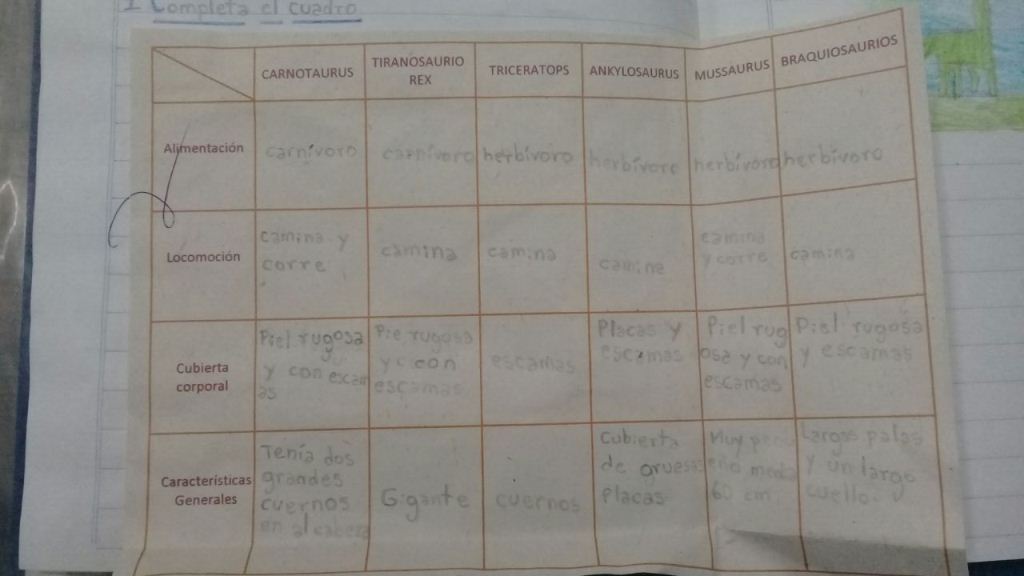 1 Completa el cuadro
CARNOTAURUS
TIRANOSAURIO
REX
TRICERATOPS
ANKYLOSAURUS
MUSSAURUS
BRAQUIOSAURIOS
Alimentación
carnívoro
carnívoro
herbívoro
herbívoro
herbívoro
herbívoro
Locomoción
camina y
corre
camina
camina
camina
camina
y corre
camina
Cubierta
corporal
Piel rugosa
y con escam
as
Pie rugosa
y con
escamas
escamas
Placas y
escamas
Piel rug
osa y con
escamas
Piel rugosa
y escamas
Características
Generales
Tenía dos
grandes
cuernos
en al cabeza
Gigante
cuernos
Cubierta
de grues
Placas
Muy
60 cm
Largas patas
y un largo
cuello